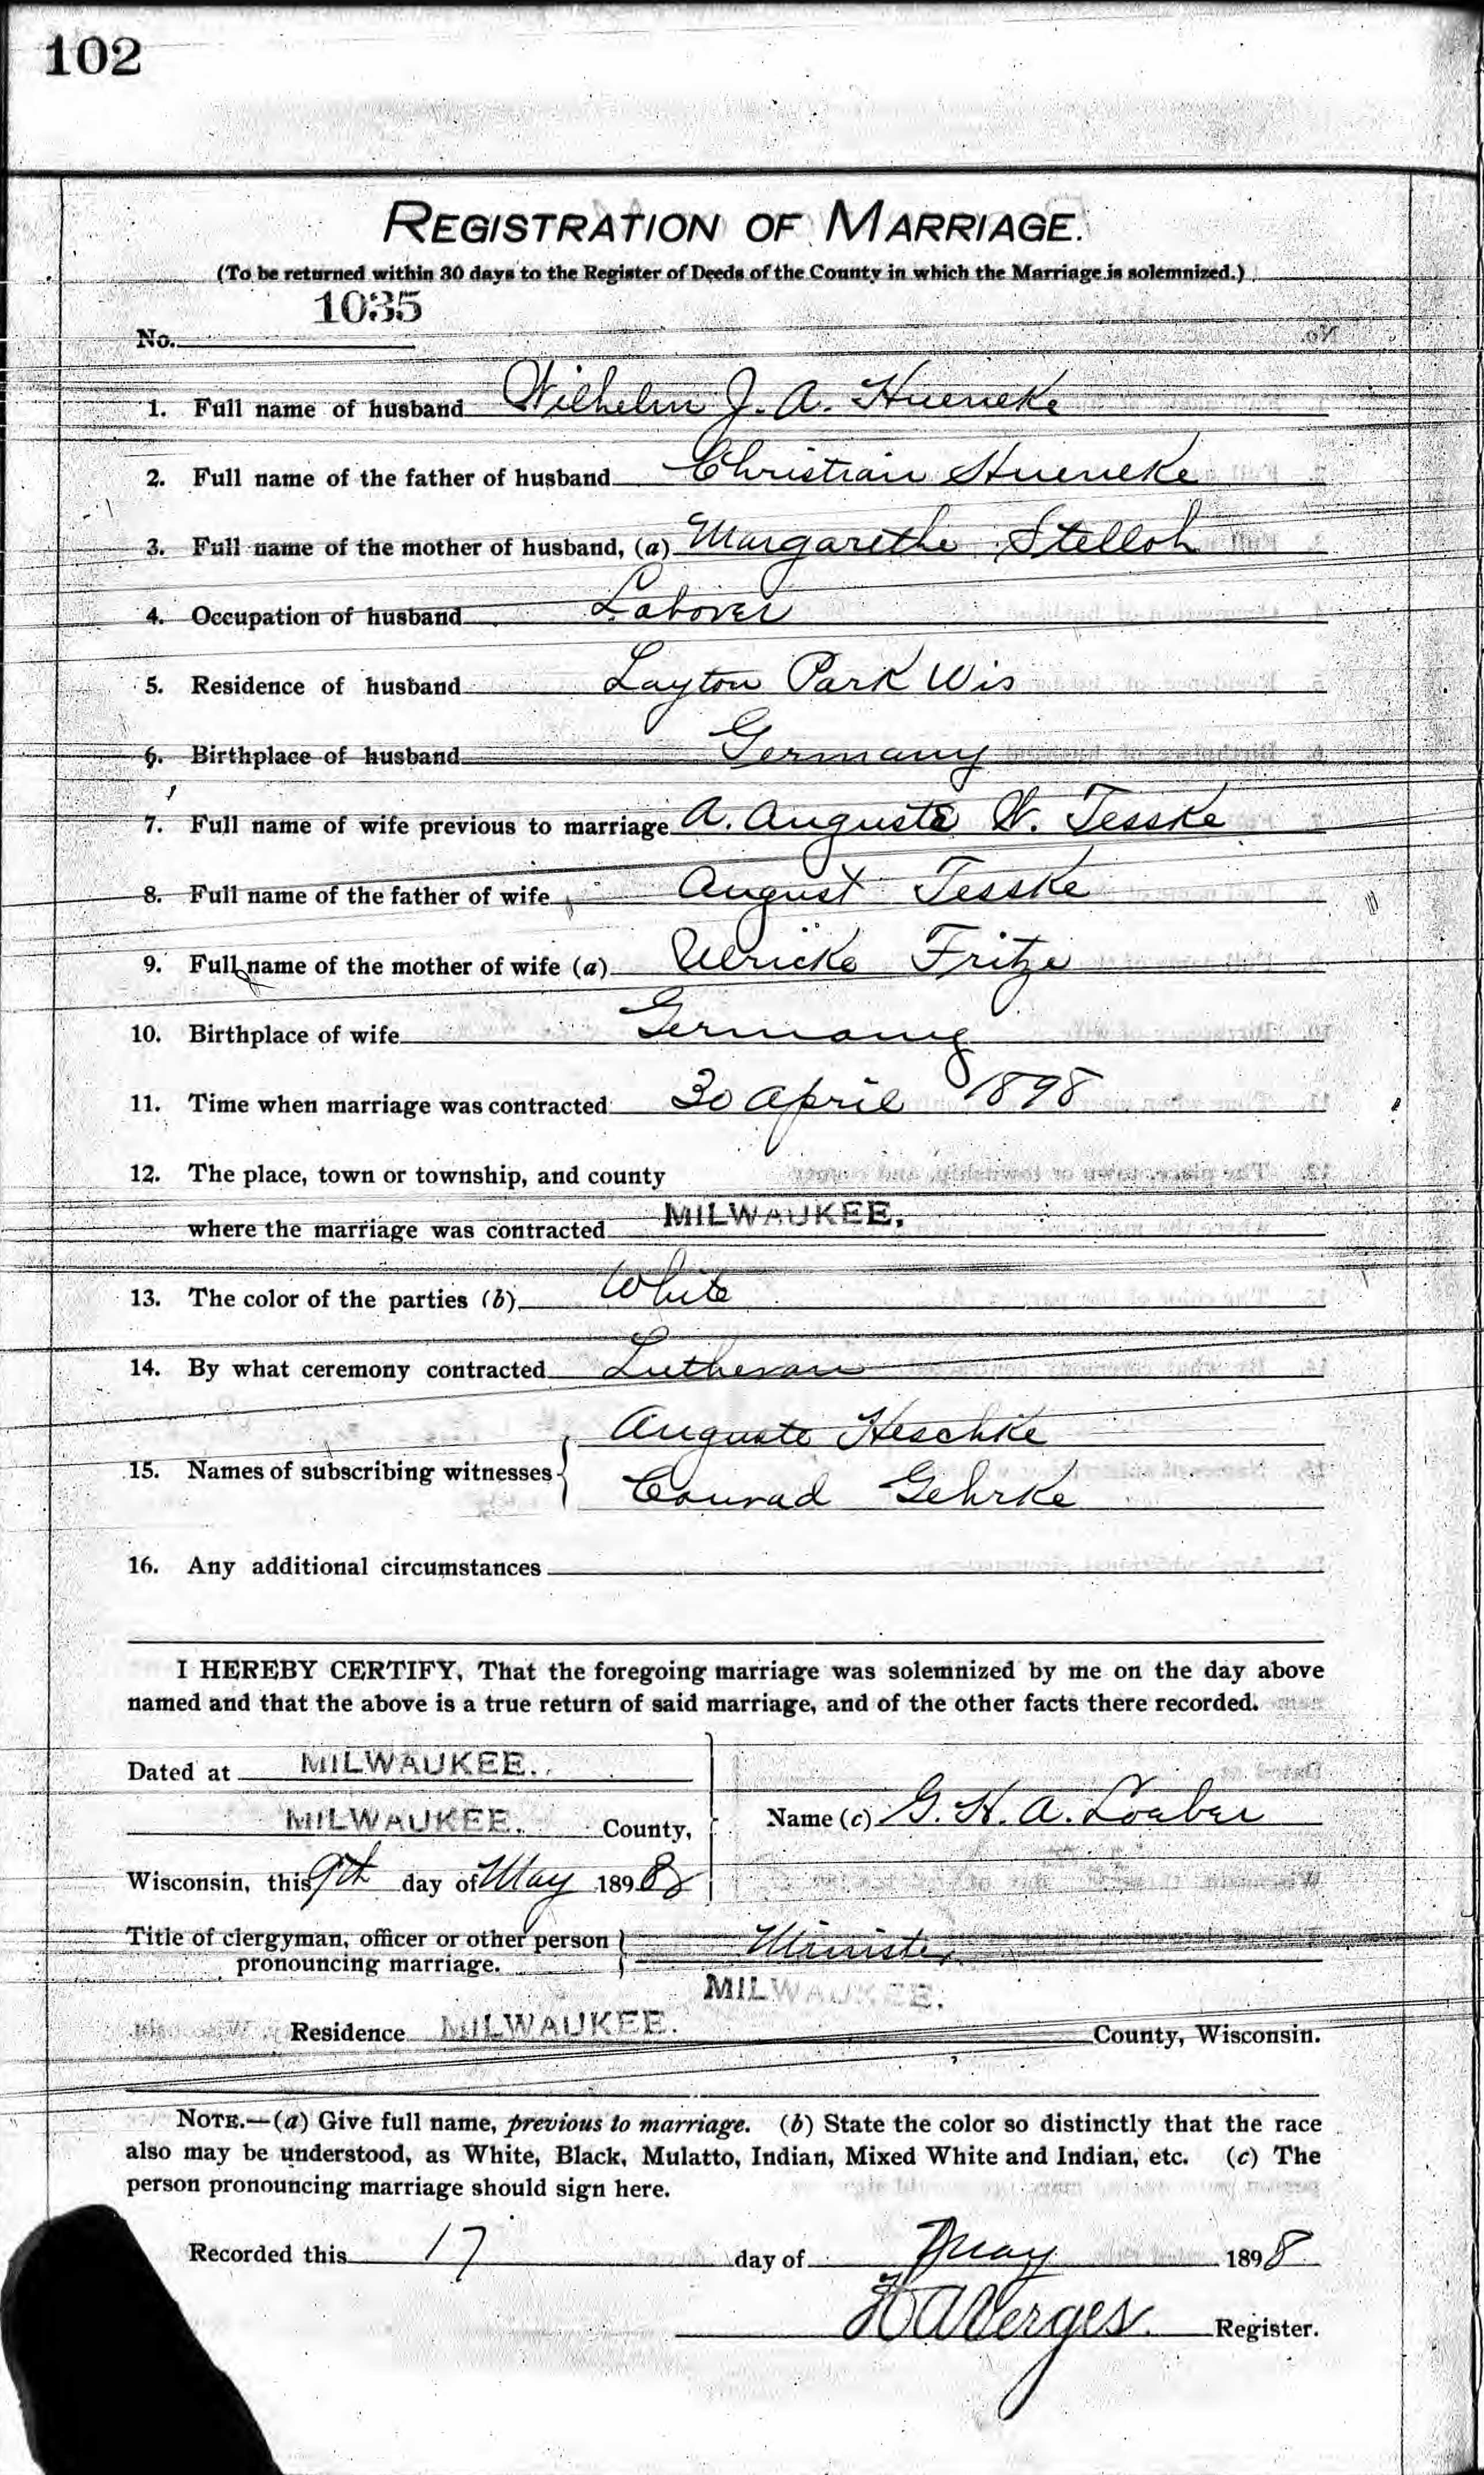 102
REGISTRATION OF MARRIAGE.
(To be returned within 30 days to the Register of Deeds of the County in which the Marriage is solemnized.)
No. 1035
1. Full name of husband Wilhelm J. A. Hueneke
2. Full name of the father of husband Christian Hueneke
3. Full name of the mother of husband, (a) Margarethe Stelloh
4. Occupation of husband Laborer
5. Residence of husband Layton Park Wis
6. Birthplace of husband Germany
7. Full name of wife previous to marriage A. Auguste W. Tesske
8. Full name of the father of wife August Tesske
9. Full name of the mother of wife (a) Ulricke Fritze
10. Birthplace of wife Germany
11. Time when marriage was contracted 30 April 1898
12. The place, town or township, and county
where the marriage was contracted MILWAUKEE.
13. The color of the parties (b) White
14. By what ceremony contracted Lutheran
Auguste Heschke
15. Names of subscribing witnesses
Conrad Gehrke
16. Any additional circumstances
I HEREBY CERTIFY, That the foregoing marriage was solemnized by me on the day above
named and that the above is a true return of said marriage, and of the other facts there recorded.
Dated at MILWAUKEE.
MILWAUKEE. County,
Name (c) G. H. A. Loeber
Wisconsin, this 9th day of May 1898
Title of clergyman, officer or other person
pronouncing marriage. Minister
MILWAUKEE.
Residence MILWAUKEE. County, Wisconsin.
NOTE.—(a) Give full name, previous to marriage. (b) State the color so distinctly that the race
also may be understood, as White, Black, Mulatto, Indian, Mixed White and Indian, etc. (c) The
person pronouncing marriage should sign here.
Recorded this 17 day of May 1898
H A Verges Register.